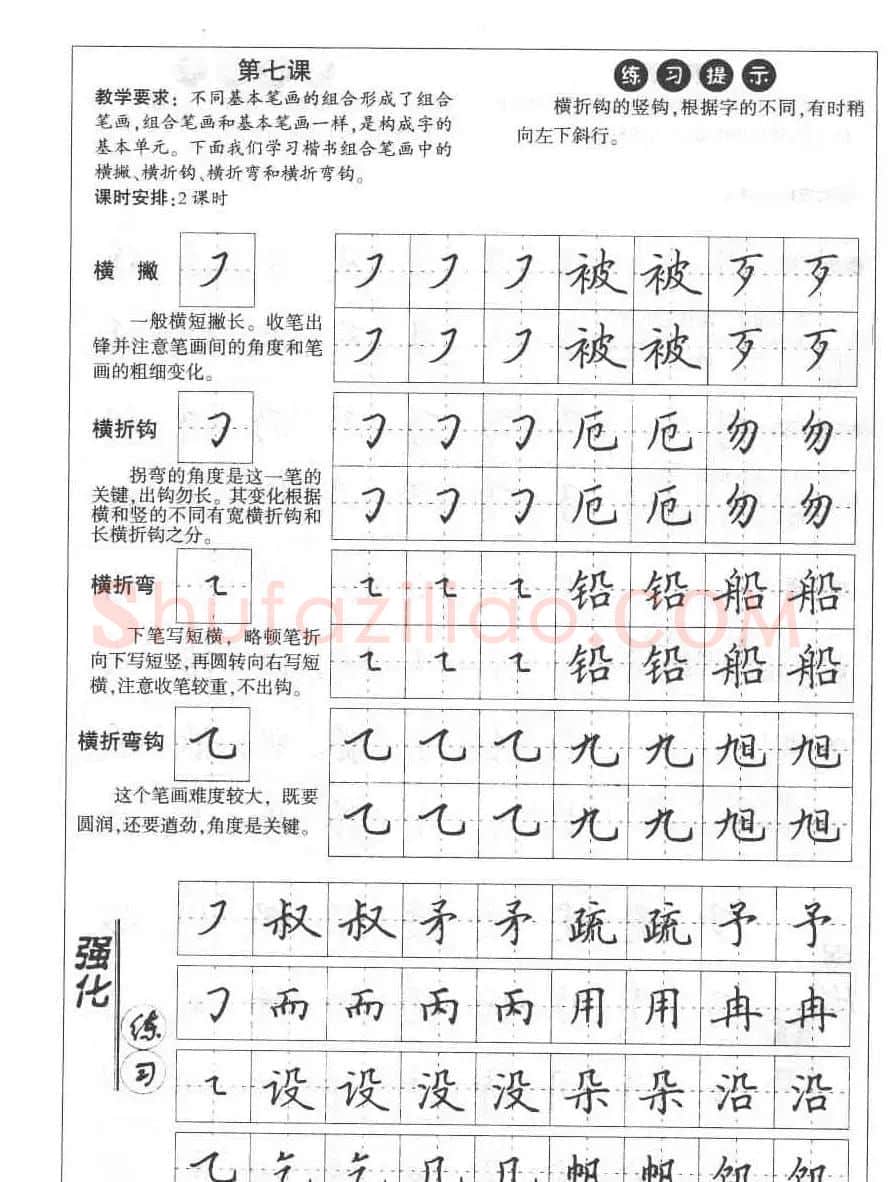 第七课
教学要求：不同基本笔画的组合形成了组合
笔画,组合笔画和基本笔画一样,是构成字的
基本单元。下面我们学习楷书组合笔画中的
横撇、横折钩、横折弯和横折弯钩。
课时安排:2课时
练习提示
横折钩的竖钩,根据字的不同,有时稍
向左下斜行。
横 撇
㇇ ㇇ ㇇ 被 被 歹 歹
一般横短撇长。收笔出
锋并注意笔画间的角度和笔
画的粗细变化。
㇇ ㇇ ㇇ 被 被 歹 歹
横折钩
㇆ ㇆ ㇆ 厄 厄 勿 勿
拐弯的角度是这一笔的
关键,出钩勿长。其变化根据
横和竖的不同有宽横折钩和
长横折钩之分。
㇆ ㇆ ㇆ 厄 厄 勿 勿
横折弯
㇍ ㇍ ㇍ 铅 铅 船 船
下笔写短横，略顿笔折
向下写短竖,再圆转向右写短
横,注意收笔较重,不出钩。
㇍ ㇍ ㇍ 铅 铅 船 船
横折弯钩
乙 乙 乙 九 九 旭 旭
这个笔画难度较大，既要
圆润,还要遒劲,角度是关键。
乙 乙 乙 九 九 旭 旭
Shufaziliao.COM
强化
练习
㇇ 叔 叔 矛 矛 疏 疏 予 予
㇆ 而 而 丙 丙 用 用 冉 冉
㇍ 设 设 没 没 朵 朵 沿 沿
乙 乞 乞 几 几 帆 帆